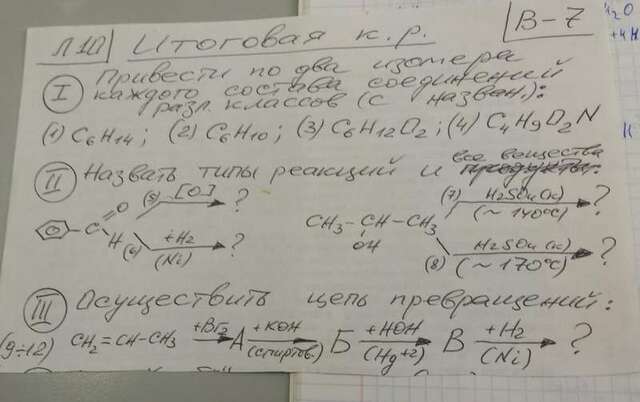 Л10 Итоговая к.р. В-7
I Привести по два изомера
каждого состава соединений
разл. классов (с назван.):
(1) C6H14; (2) C6H10; (3) C6H12O2; (4) C4H9O2N
II Назвать типы реакций и все вещества
продукты:
(5) [O] ?
C O H
(6) +H2 (Ni) ?
CH3-CH-CH3
OH
(7) H2SO4(к) (~140°C) ?
(8) H2SO4(к) (~170°C) ?
III Осуществить цепь превращений:
(9÷12) CH2=CH-CH3 +Br2 А +KOH (спиртов.) Б +HOH (Hg+2) В +H2 (Ni) ?
H2O
+4H